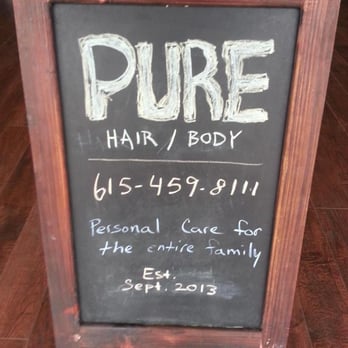 PURE
HAIR / BODY
615-459-8111
Personal Care for
the entire family
Est.
Sept. 2013